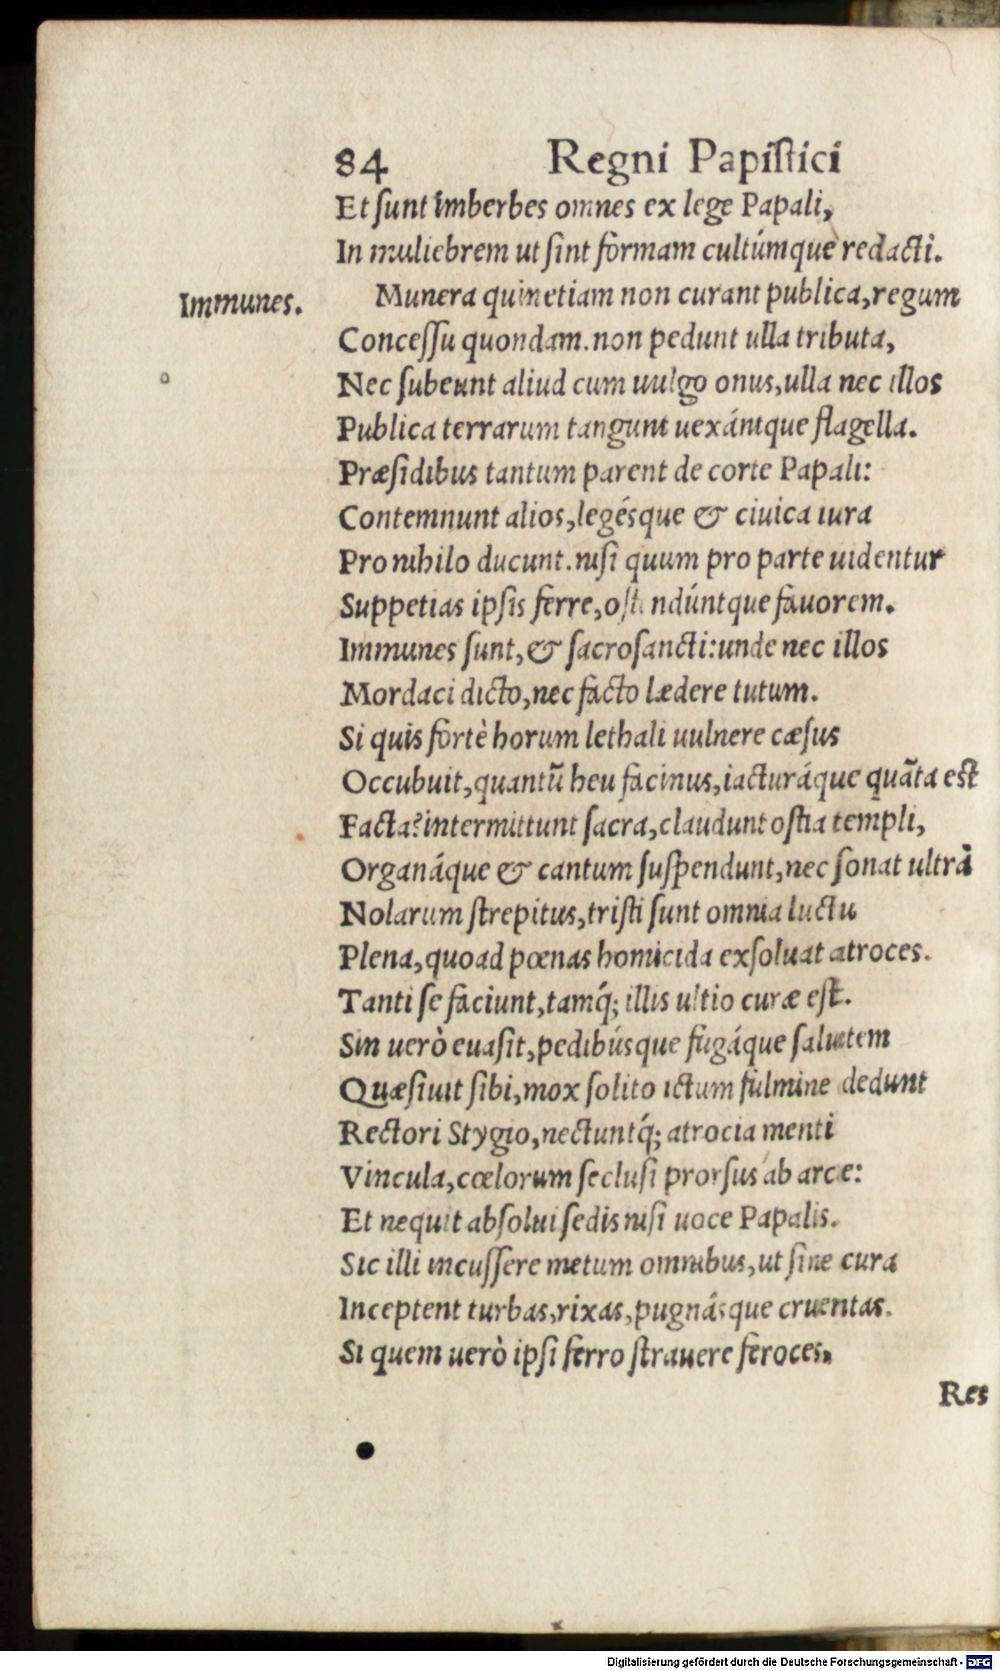 84 Regni Papiſtici
Et ſunt imberbes omnes ex lege Papali,
In muliebrem ut ſint formam cultúmque redacti.
Immunes.
Munera quinetiam non curant publica, regum
Conceſſu quondam. non pedunt ulla tributa,
Nec ſubeunt aliud cum uulgo onus, ulla nec illos
Publica terrarum tangunt uexántque flagella.
Præſidibus tantum parent de corte Papali:
Contemnunt alios, legésque & ciuica iura
Pro nihilo ducunt. niſi quum pro parte uidentur
Suppetias ipſis ferre, oſtendúntque fauorem.
Immunes ſunt, & ſacroſancti: unde nec illos
Mordaci dicto, nec facto lædere tutum.
Si quis fortè horum lethali uulnere cæſus
Occubuit, quantū heu facinus, iacturáque quāta est
Facta? intermittunt ſacra, claudunt oſtia templi,
Organáque & cantum ſuſpendunt, nec ſonat ultrà
Nolarum ſtrepitus, triſti ſunt omnia luctu
Plena, quoad pœnas homicida exſoluat atroces.
Tanti ſe faciunt, tamq́; illis ultio curæ eſt.
Sin uerò euaſit, pedibúsque fugáque ſalutem
Quæſiuit ſibi, mox ſolito ictum fulmine dedunt
Rectori Stygio, nectuntq́; atrocia menti
Vincula, cœlorum ſecluſi prorſus ab arce:
Et nequit abſolui ſedis niſi uoce Papalis.
Sic illi incuſſere metum omnibus, ut ſine cura
Inceptent turbas, rixas, pugnásque cruentas.
Si quem uerò ipſi ferro ſtrauere feroces,
Res
Digitalisierung gefördert durch die Deutsche Forschungsgemeinschaft - DFG